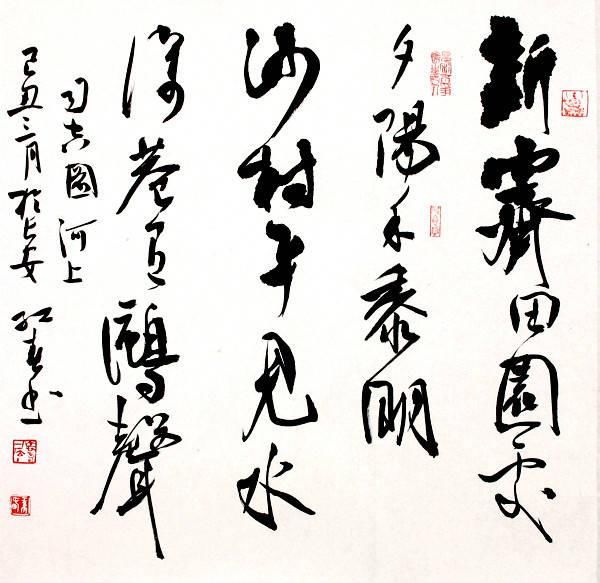 新霽田園處
夕陽禾黍明
沙村平見水
深巷有鷗聲
司空圖 河上
己丑三月於长安 书